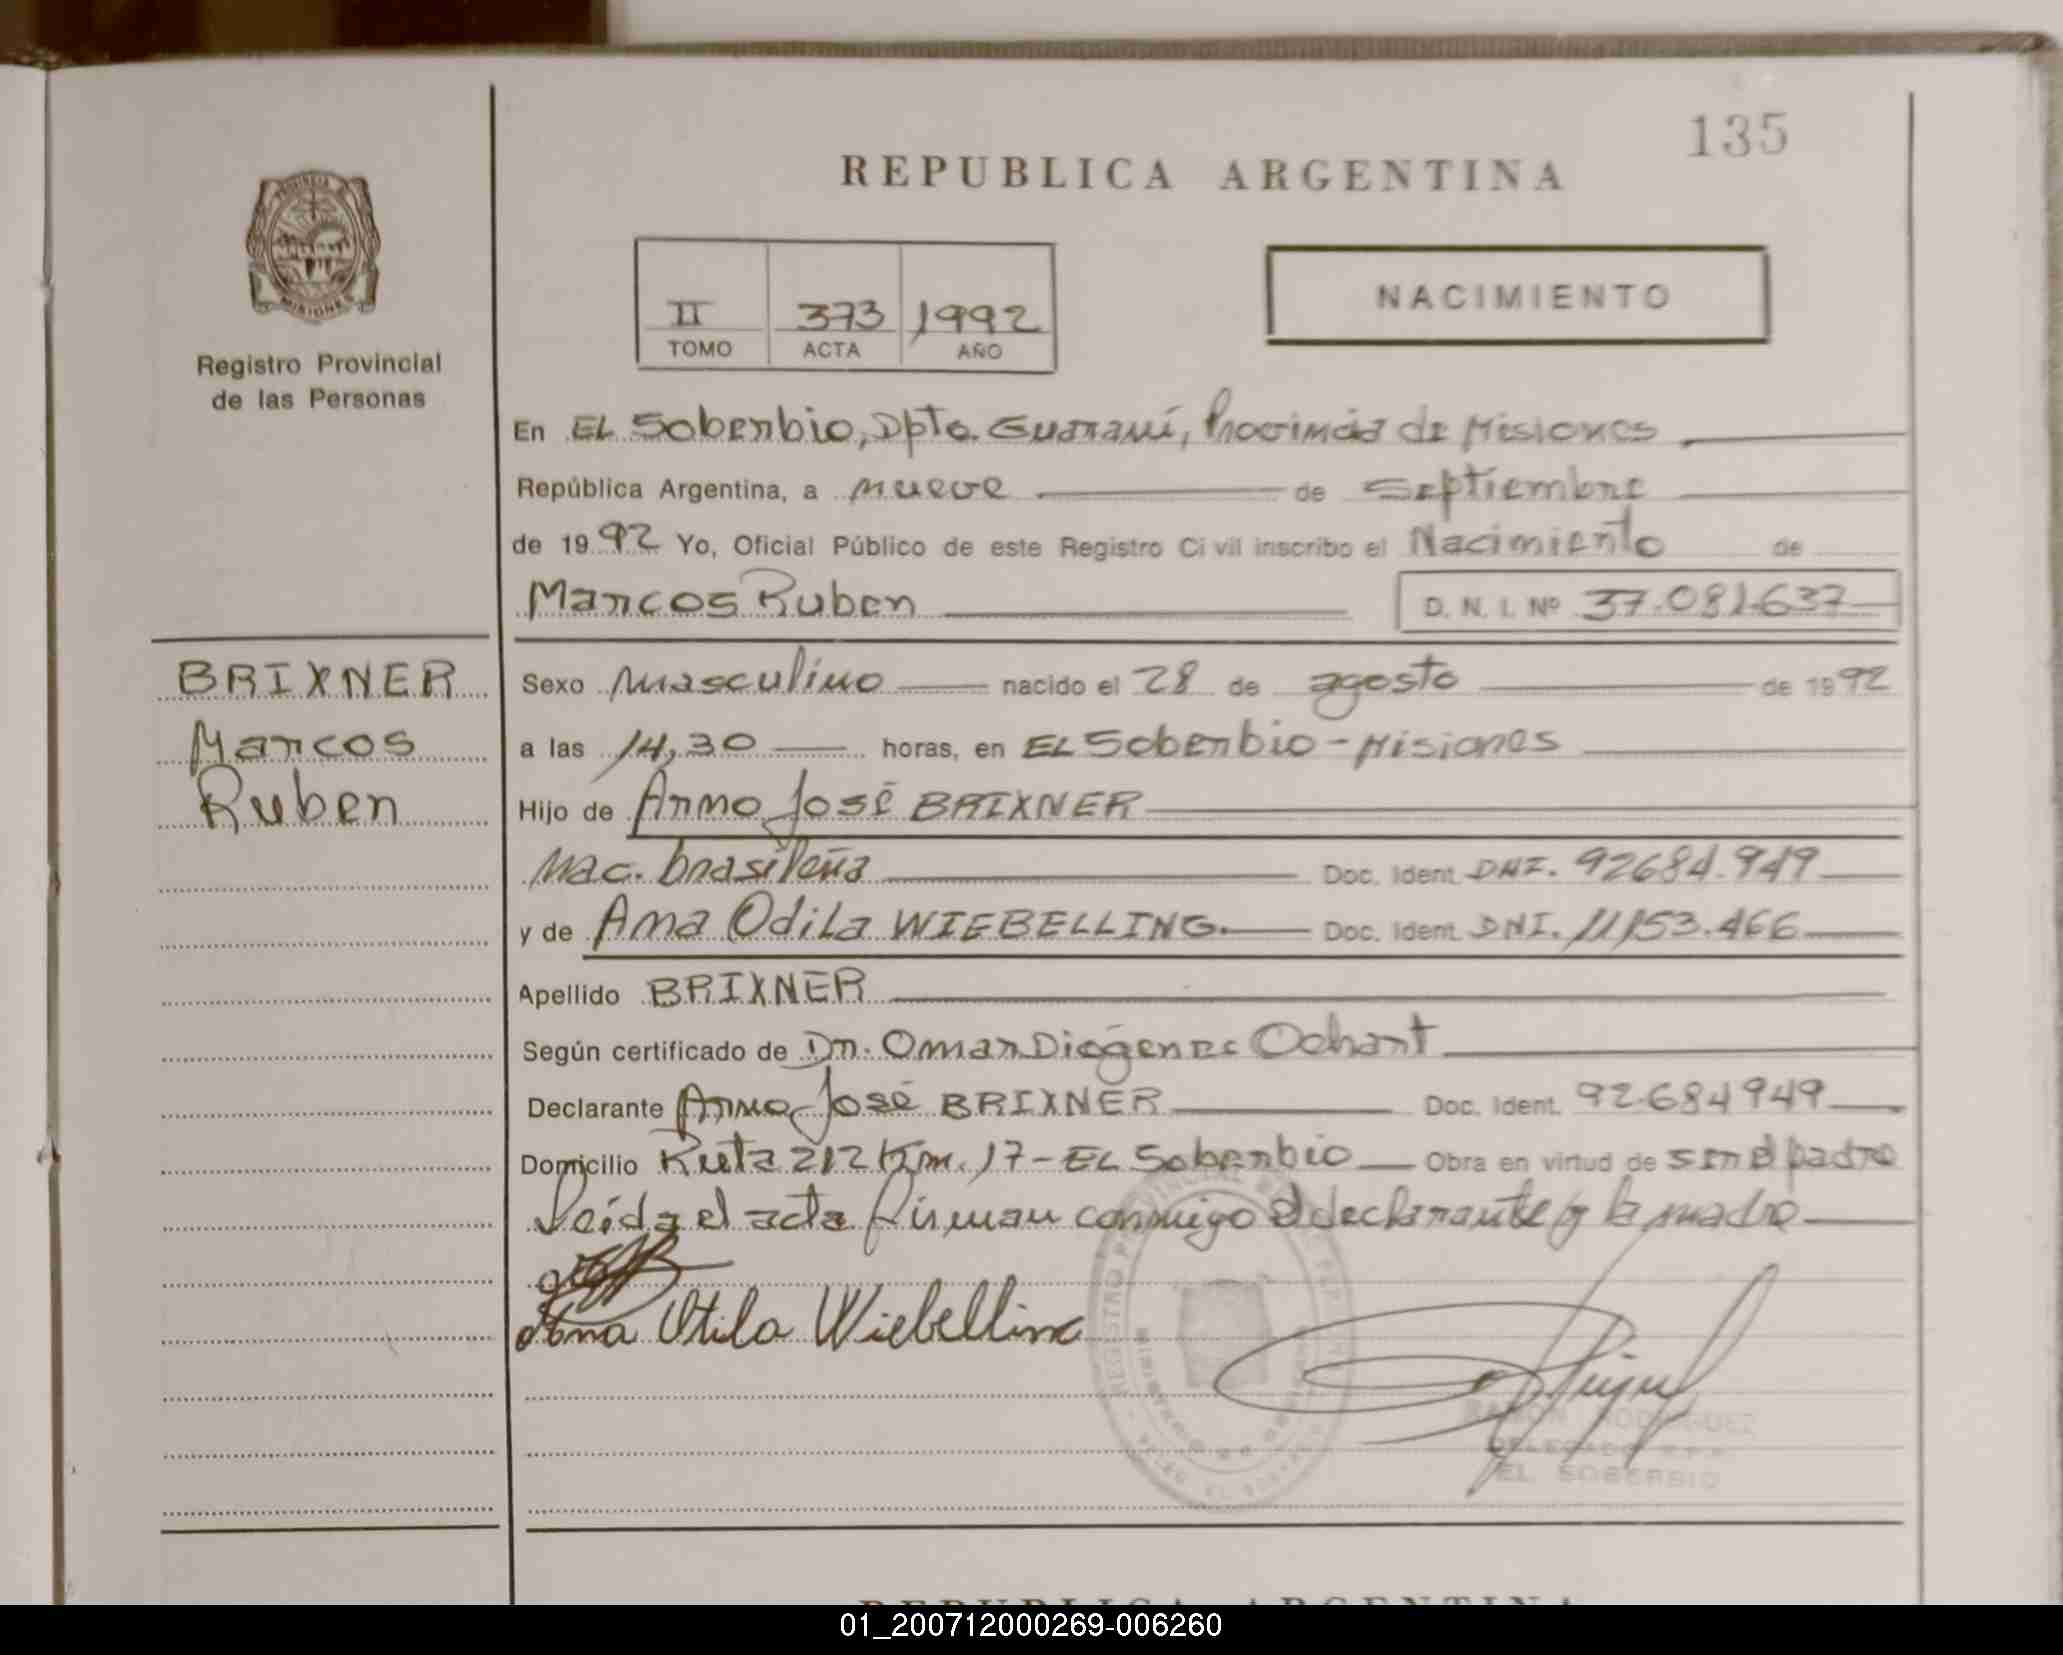 135
REPUBLICA ARGENTINA
NACIMIENTO
II 373 1992
TOMO ACTA AÑO
Registro Provincial
de las Personas
En EL Soberbio, Dpto. Guaraní, Provincia de Misiones
República Argentina, a nueve de Septiembre
de 1992 Yo, Oficial Público de este Registro Civil inscribo el Nacimiento de
Marcos Ruben D. N. I. Nº 37.081.637
BRIXNER
Marcos
Ruben
Sexo masculino nacido el 28 de agosto de 1992
a las 14,30 horas, en EL Soberbio - Misiones
Hijo de Arno José BRIXNER
Nac. brasileña Doc. Ident. DNI. 92684.949
y de Ana Odila WIEBELLING. Doc. Ident. DNI. 11153.466
Apellido BRIXNER
Según certificado de Dr. Omar Diógenes Ochart
Declarante Arno José BRIXNER Doc. Ident. 92.684949
Domicilio Ruta 212 Km. 17 - EL Soberbio Obra en virtud de ser el padre
Leída el acta firman conmigo el declarante y la madre
Ana Otila Wiebelling
REGISTRO PROVINCIAL
RAMON RODRIGUEZ
DELEGADO R.P.P.
EL SOBERBIO
REPUBLICA ARGENTINA
01_200712000269-006260